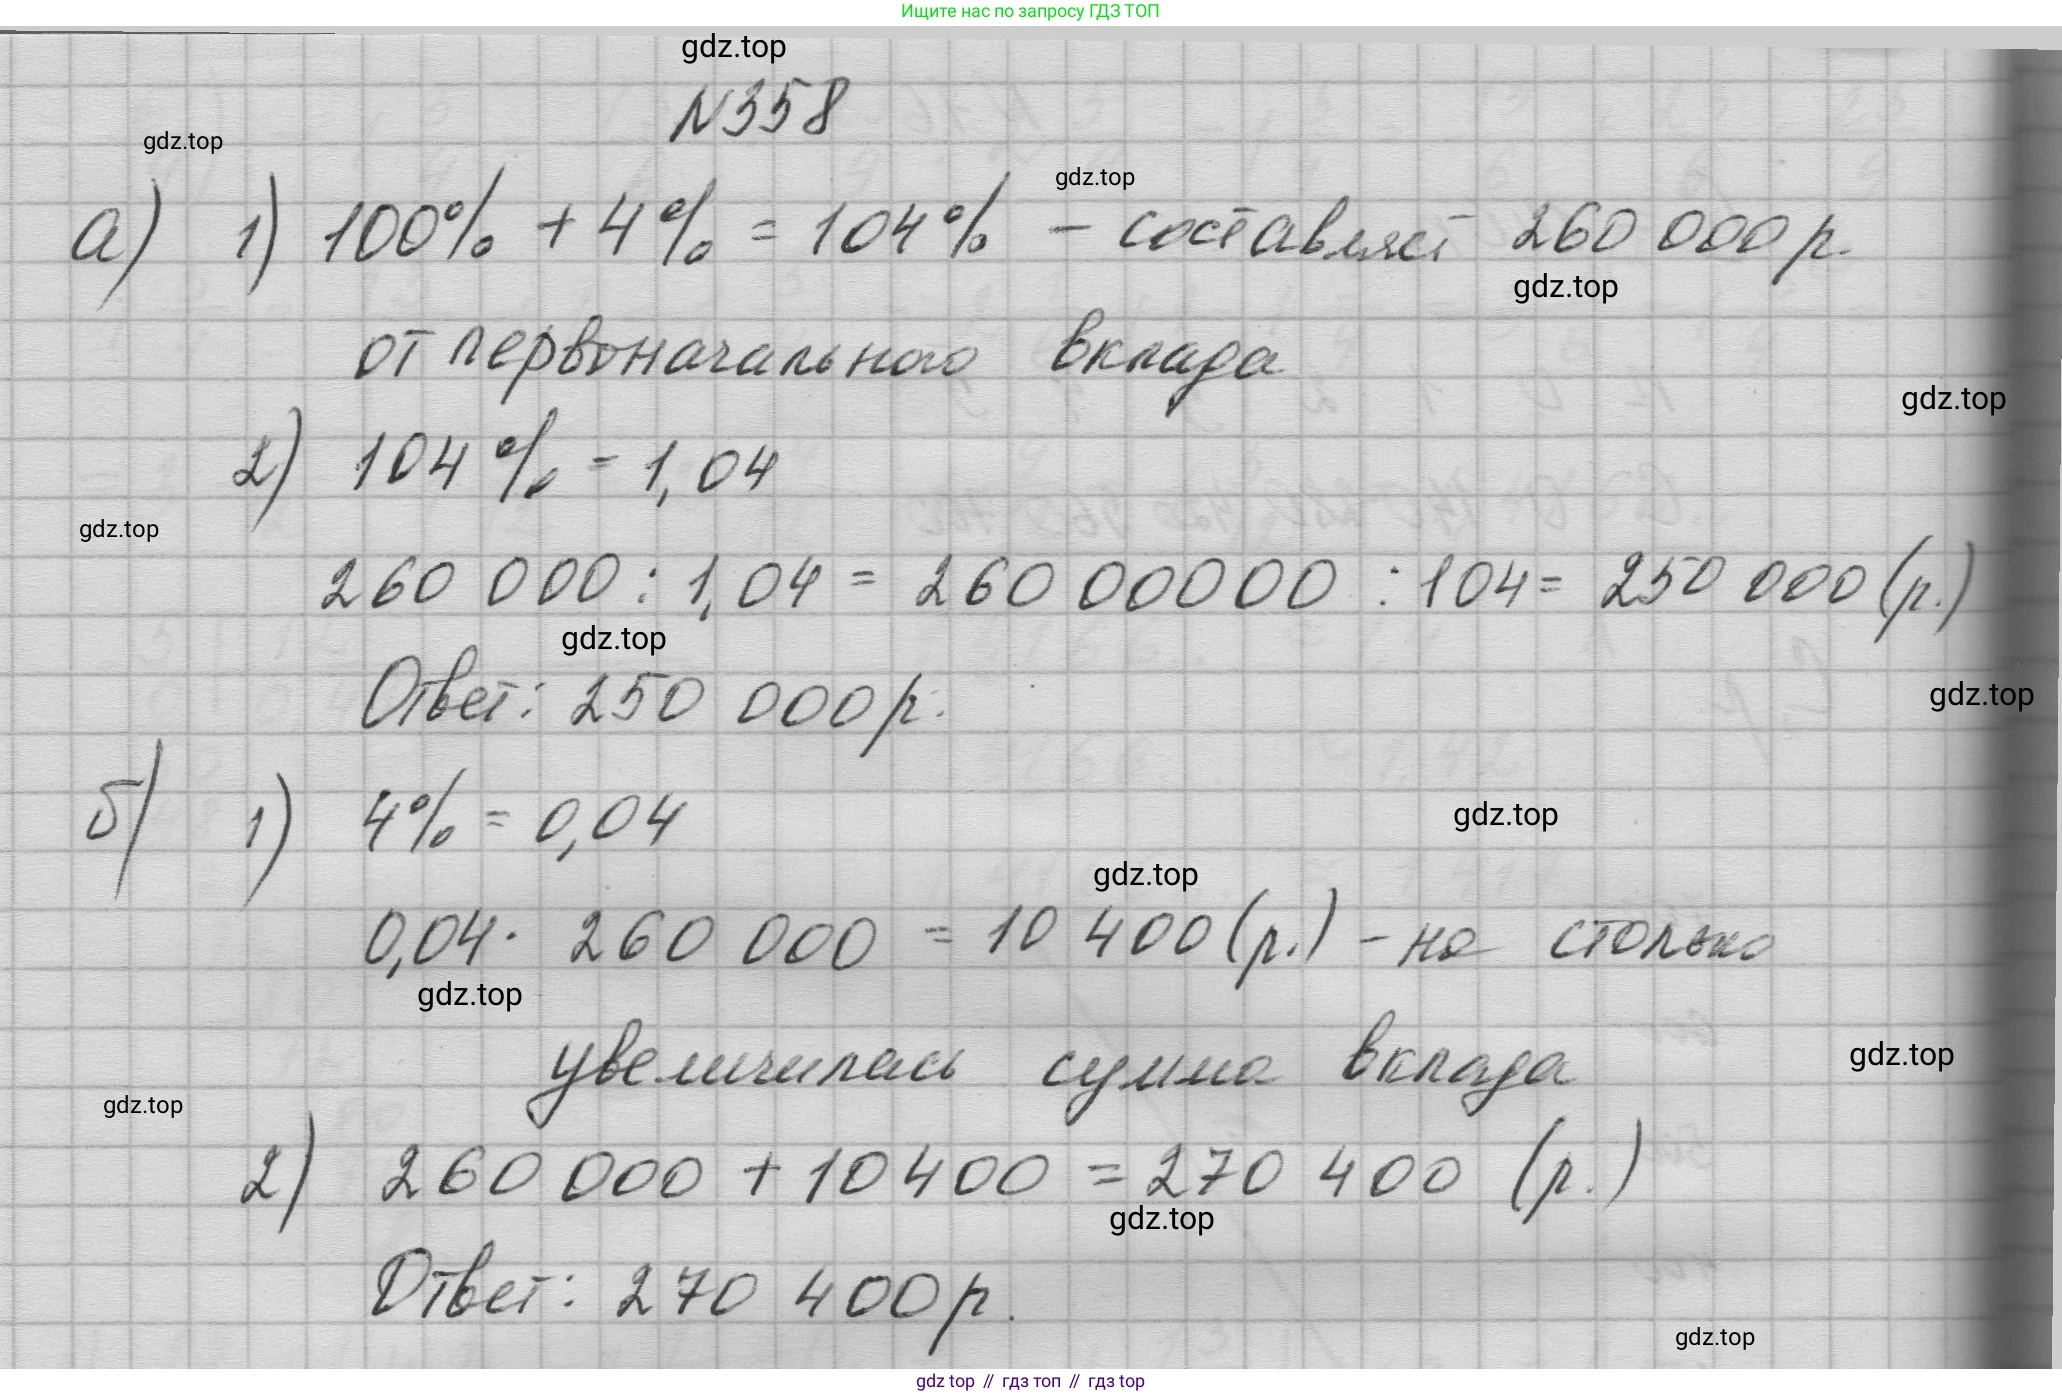 Ищите нас по запросу ГДЗ ТОП
gdz.top
N358
gdz.top
gdz.top
а) 1) 100% + 4% = 104% – составляет 260 000 р.
gdz.top
от первоначального вклада
gdz.top
2) 104% = 1,04
gdz.top
260 000 : 1,04 = 260 00000 : 104 = 250 000 (р.)
gdz.top
Ответ: 250 000 р.
gdz.top
б) 1) 4% = 0,04
gdz.top
gdz.top
0,04 · 260 000 = 10 400 (р.) – на столько
gdz.top
увеличилась сумма вклада
gdz.top
gdz.top
2) 260 000 + 10 400 = 270 400 (р.)
gdz.top
Ответ: 270 400 р.
gdz.top
gdz top // гдз топ // гдз top